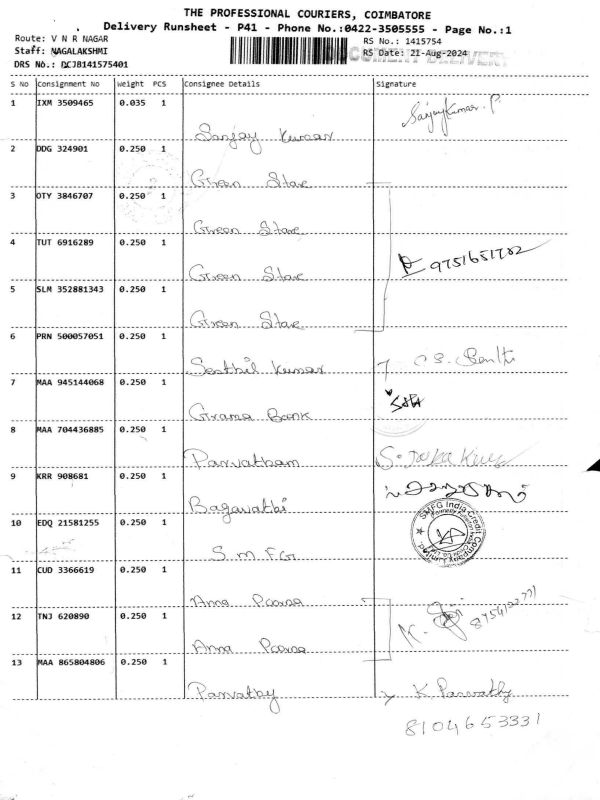 THE PROFESSIONAL COURIERS, COIMBATORE
Delivery Runsheet - P41 - Phone No.:0422-3505555 - Page No.:1
Route: V N R NAGAR
RS No.: 1415754
Staff: NAGALAKSHMI
RS Date: 21-Aug-2024
DOCUMENT DELIVERY
DRS No.: DCJB141575401
S No Consignment No Weight PCS Consignee Details Signature
1 IXM 3509465 0.035 1
Sanjay Kumar Sanjaykumar. P.
2 DDG 324901 0.250 1
Green Stare
3 OTY 3846707 0.250 1
Green Stare
4 TUT 6916289 0.250 1
Green Stare 9751651702
5 SLM 352881343 0.250 1
Green Stare
6 PRN 500057051 0.250 1
Senthil Kumar
7 MAA 945144068 0.250 1
Grama Bank
8 MAA 704436885 0.250 1
Parvatham
9 KRR 908681 0.250 1
Bagavathi
10 EDQ 21581255 0.250 1
S m FG SMFG India Credit Company Limited
11 CUD 3366619 0.250 1
Anna Poorna
12 TNJ 620890 0.250 1
Anna Poorna
13 MAA 865804806 0.250 1
Parvathy K. Parvathy
8104653331